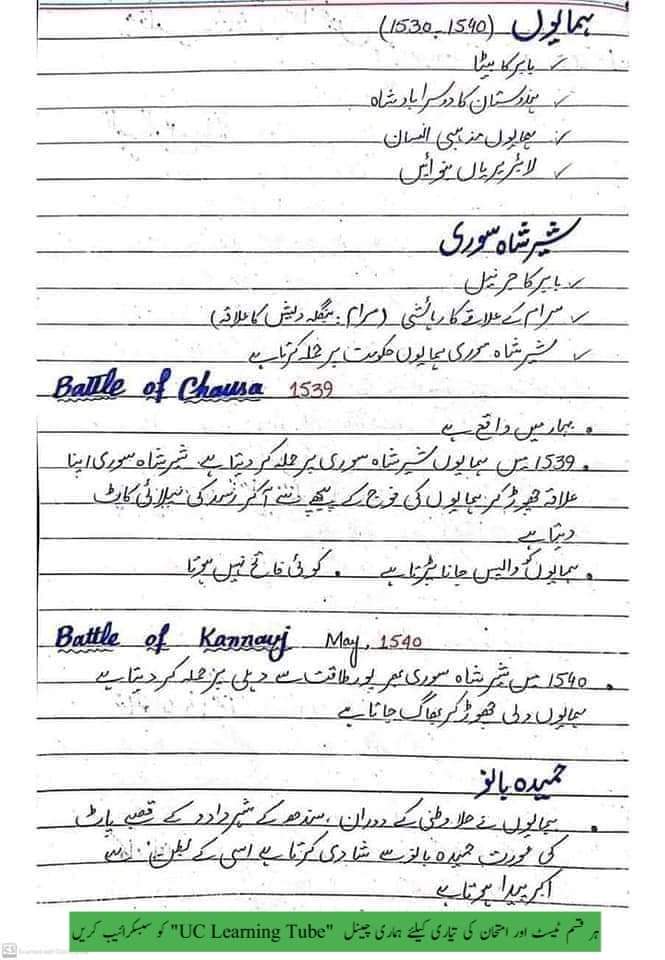 ہمایوں (1530-1540)
✓ بابر کا بیٹا
✓ ہندوستان کا دوسرا بادشاہ
✓ ہمایوں مذہبی انسان
✓ لائبریریاں بنوائیں
شیر شاہ سوری
✓ بابر کا جرنیل
✓ سرام کے علاقے کا رہائشی (سرام: بنگلہ دیش کا علاقہ)
✓ شیر شاہ سوری ہمایوں حکومت پر حملہ کرتا ہے
Battle of Chausa 1539
• بہار میں واقع ہے
• 1539 میں ہمایوں شیر شاہ سوری پر حملہ کر دیتا ہے۔ شیر شاہ سوری اپنا
علاقہ چھوڑ کر ہمایوں کی فوج کے پیچھے سے آکر رسد کی سپلائی کاٹ
دیتا ہے
• ہمایوں کو واپس جانا پڑتا ہے • کوئی فاتح نہیں ہوتا
Battle of Kannauj May, 1540
• 1540 میں شیر شاہ سوری بھر پور طاقت سے دہلی پر حملہ کر دیتا ہے
ہمایوں دلی چھوڑ کر بھاگ جاتا ہے
حمیدہ بانو
• ہمایوں نے جلاوطنی کے دوران، سندھ کے شہر دادو کے قصبے پاٹ
کی عورت حمیدہ بانو سے شادی کرتا ہے اسی کے بطن سے
اکبر پیدا ہوتا ہے
ہر قسم ٹیسٹ اور امتحان کی تیاری کیلئے ہماری چینل "UC Learning Tube" کو سبسکرائیب کریں
CS